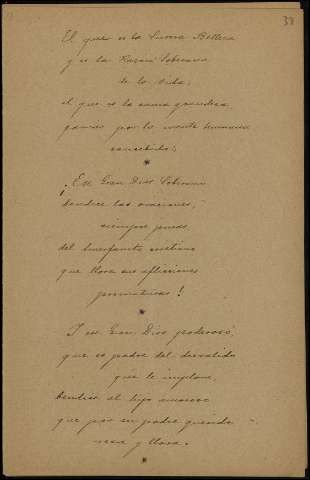 38
El que es la Suma Belleza
y es la Razón Soberana
de la vida;
el que es la suma grandeza
jamás por la mente humana
concebida;
*
¡Ese Gran Dios Soberano
bendice las oraciones,
siempre puras
del huerfanito
que llora sus aflicciones
prematuras!
*
Y ese Gran Dios poderoso,
que es padre del desvalido
que le implora,
bendice al hijo amoroso
que por su padre querido
reza y llora.
*